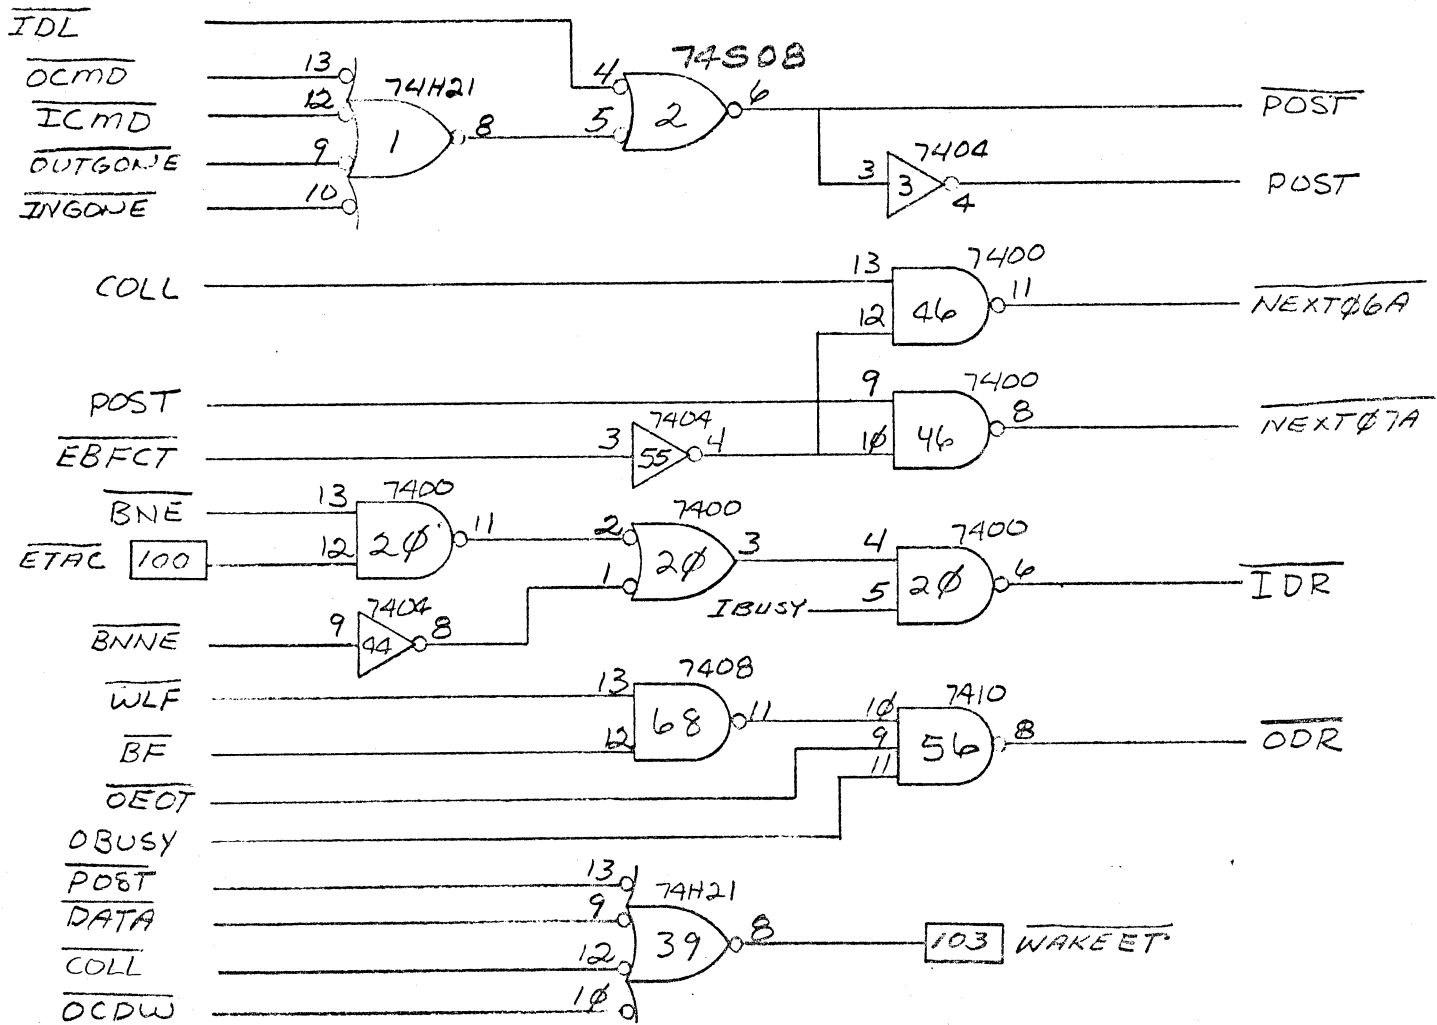 IDL
OCMD
ICMD
OUTGONE
INGONE
13
12
9
10
74H21
1
8
4
5
74S08
2
6
POST
7404
3
3
4
POST
COLL
13
12
7400
46
11
NEXTØ6A
POST
EBFCT
3
7404
55
4
9
1Ø
7400
46
8
NEXTØ7A
BNE
ETAC 100
13
12
7400
2Ø
11
BNNE
9
7404
44
8
2
1
7400
2Ø
3
IBUSY
4
5
7400
2Ø
6
IDR
WLF
BF
13
12
7408
68
11
OEOT
OBUSY
1Ø
9
11
7410
56
8
ODR
POST
DATA
COLL
OCDW
13
9
12
1Ø
74H21
39
8
103 WAKEET